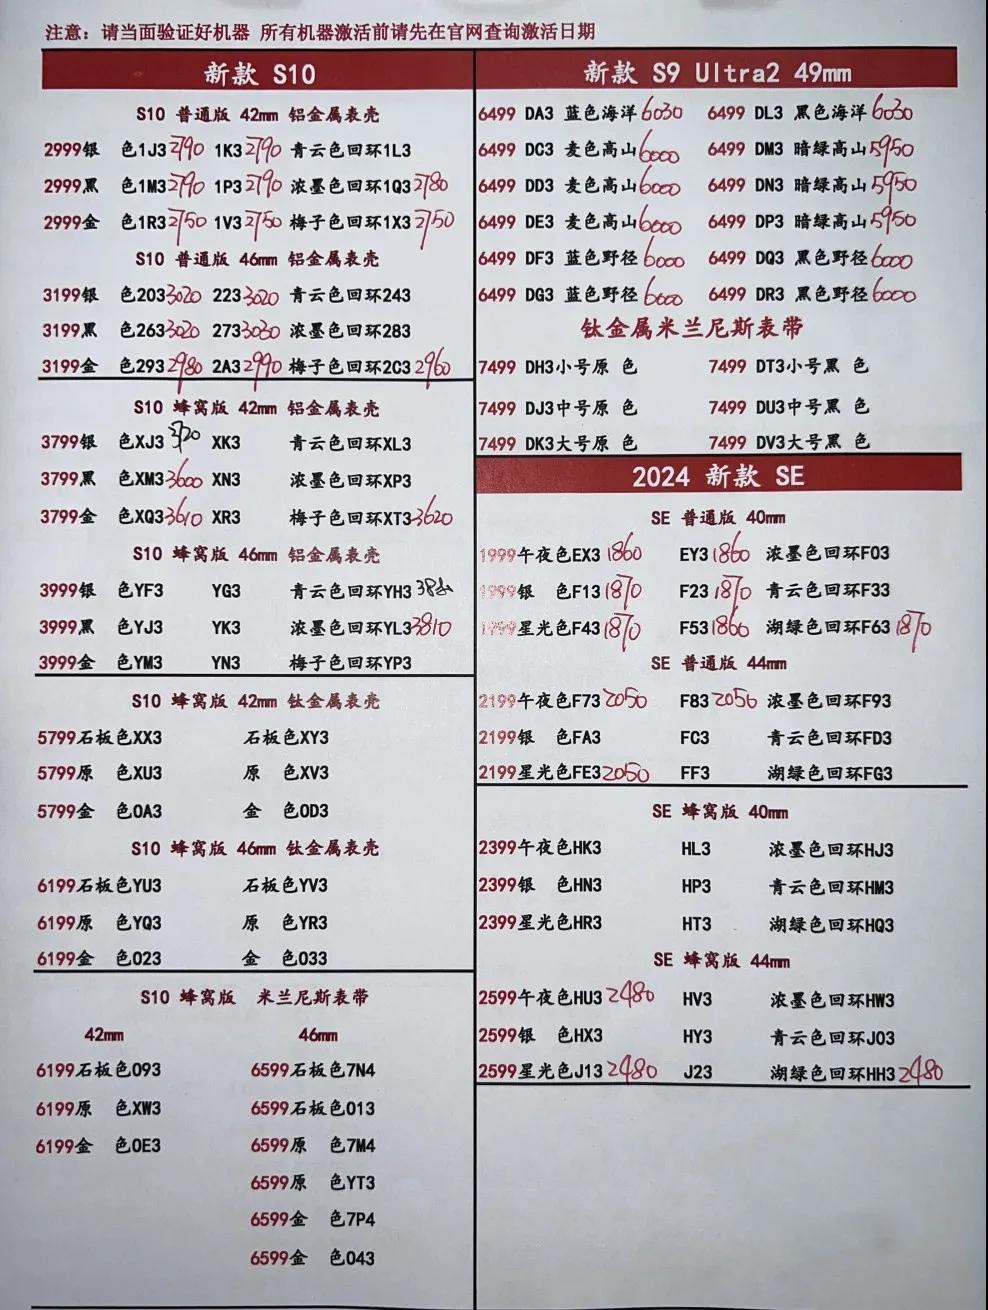 注意：请当面验证好机器 所有机器激活前请先在官网查询激活日期
新款 S10
S10 普通版 42mm 铝金属表壳
2999银 色1J3 2790 1K3 2790 青云色回环1L3
2999黑 色1M3 2790 1P3 2790 浓墨色回环1Q3 2780
2999金 色1R3 2750 1V3 2750 梅子色回环1X3 2750
S10 普通版 46mm 铝金属表壳
3199银 色203 3020 223 3020 青云色回环243
3199黑 色263 3020 273 3030 浓墨色回环283
3199金 色293 2980 2A3 2990 梅子色回环2C3 2960
S10 蜂窝版 42mm 铝金属表壳
3799银 色XJ3 XK3 青云色回环XL3
3799黑 色XM3 3600 XN3 浓墨色回环XP3
3799金 色XQ3 3610 XR3 梅子色回环XT3 3620
S10 蜂窝版 46mm 铝金属表壳
3999银 色YF3 YG3 青云色回环YH3
3999黑 色YJ3 YK3 浓墨色回环YL3 3810
3999金 色YM3 YN3 梅子色回环YP3
S10 蜂窝版 42mm 钛金属表壳
5799石板色XX3 石板色XY3
5799原 色XU3 原 色XV3
5799金 色0A3 金 色0D3
S10 蜂窝版 46mm 钛金属表壳
6199石板色YU3 石板色YV3
6199原 色YQ3 原 色YR3
6199金 色023 金 色033
S10 蜂窝版 米兰尼斯表带
42mm 46mm
6199石板色093 6599石板色7N4
6199原 色XW3 6599石板色013
6199金 色0E3 6599原 色7M4
6599原 色YT3
6599金 色7P4
6599金 色043
新款 S9 Ultra2 49mm
6499 DA3 蓝色海洋 6030 6499 DL3 黑色海洋 6030
6499 DC3 麦色高山 6000 6499 DM3 暗绿高山 5950
6499 DD3 麦色高山 6000 6499 DN3 暗绿高山 5950
6499 DE3 麦色高山 6000 6499 DP3 暗绿高山 5950
6499 DF3 蓝色野径 6000 6499 DQ3 黑色野径 6000
6499 DG3 蓝色野径 6000 6499 DR3 黑色野径 6000
钛金属米兰尼斯表带
7499 DH3小号原 色 7499 DT3小号黑 色
7499 DJ3中号原 色 7499 DU3中号黑 色
7499 DK3大号原 色 7499 DV3大号黑 色
2024 新款 SE
SE 普通版 40mm
1999午夜色EX3 1860 EY3 1860 浓墨色回环F03
1999银 色F13 1870 F23 1870 青云色回环F33
1999星光色F43 1870 F53 1860 湖绿色回环F63 1870
SE 普通版 44mm
2199午夜色F73 2050 F83 2050 浓墨色回环F93
2199银 色FA3 FC3 青云色回环FD3
2199星光色FE3 2050 FF3 湖绿色回环FG3
SE 蜂窝版 40mm
2399午夜色HK3 HL3 浓墨色回环HJ3
2399银 色HN3 HP3 青云色回环HM3
2399星光色HR3 HT3 湖绿色回环HQ3
SE 蜂窝版 44mm
2599午夜色HU3 2480 HV3 浓墨色回环HW3
2599银 色HX3 HY3 青云色回环J03
2599星光色J13 2480 J23 湖绿色回环HH3 2480